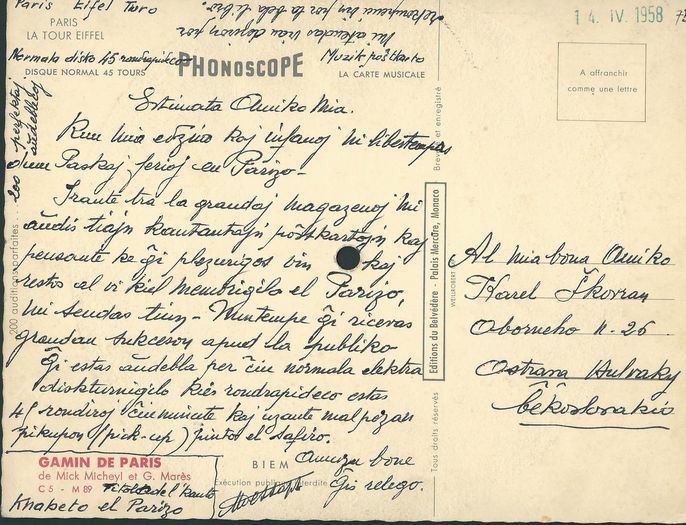 Paris Eifel Turo
PARIS
LA TOUR EIFFEL
Normala disko 45 rondrapideco
DISQUE NORMAL 45 TOURS
PHONOSCOPE
Muzik poŝtkarto
LA CARTE MUSICALE
Mi atendas vian
respondon
por
14. IV. 1958
A affranchir
comme une lettre
200 auditions parfaites...
200 perfektaj
aŭdeblecoj
Estimata Amiko Mia.
Kun mia edzino kaj infanoj ni libertempas
dum Paskaj ferioj en Parizo -
Irante tra la grandaj magazenoj mi
aŭdis tiajn kantantajn poŝtkartojn kaj
pensante ke ĝi plezurigos vin kaj
restos al vi kiel memorigilo el Parizo,
mi sendas tiun - Nuntempe ĝi ricevas
grandan sukceson apud la publiko
Ĝi estas aŭdebla per ĉiu normala elektra
diskturnigilo kies rondrapideco estas
45 rondiroj ĉiuminute kaj uzante malpezan
pikupon (pick-up) pinto el safiro.
Amuzu bone
Ĝis relego.
GAMIN DE PARIS
de Mick Micheyl et G. Marès
C 5 - M 89
Titolo de l' kanto
Knabeto el Parizo
BIEM
Exécution publique interdite
Breveté et enregistré
Editions du Belvédère - Palais Mercure, Monaco
WEILL-ROBERT
Tous droits réservés
Al mia bona Amiko
Karel Škovran
Oborneho n. 26
Ostrava Hulvaky
Ĉêkoslovakio